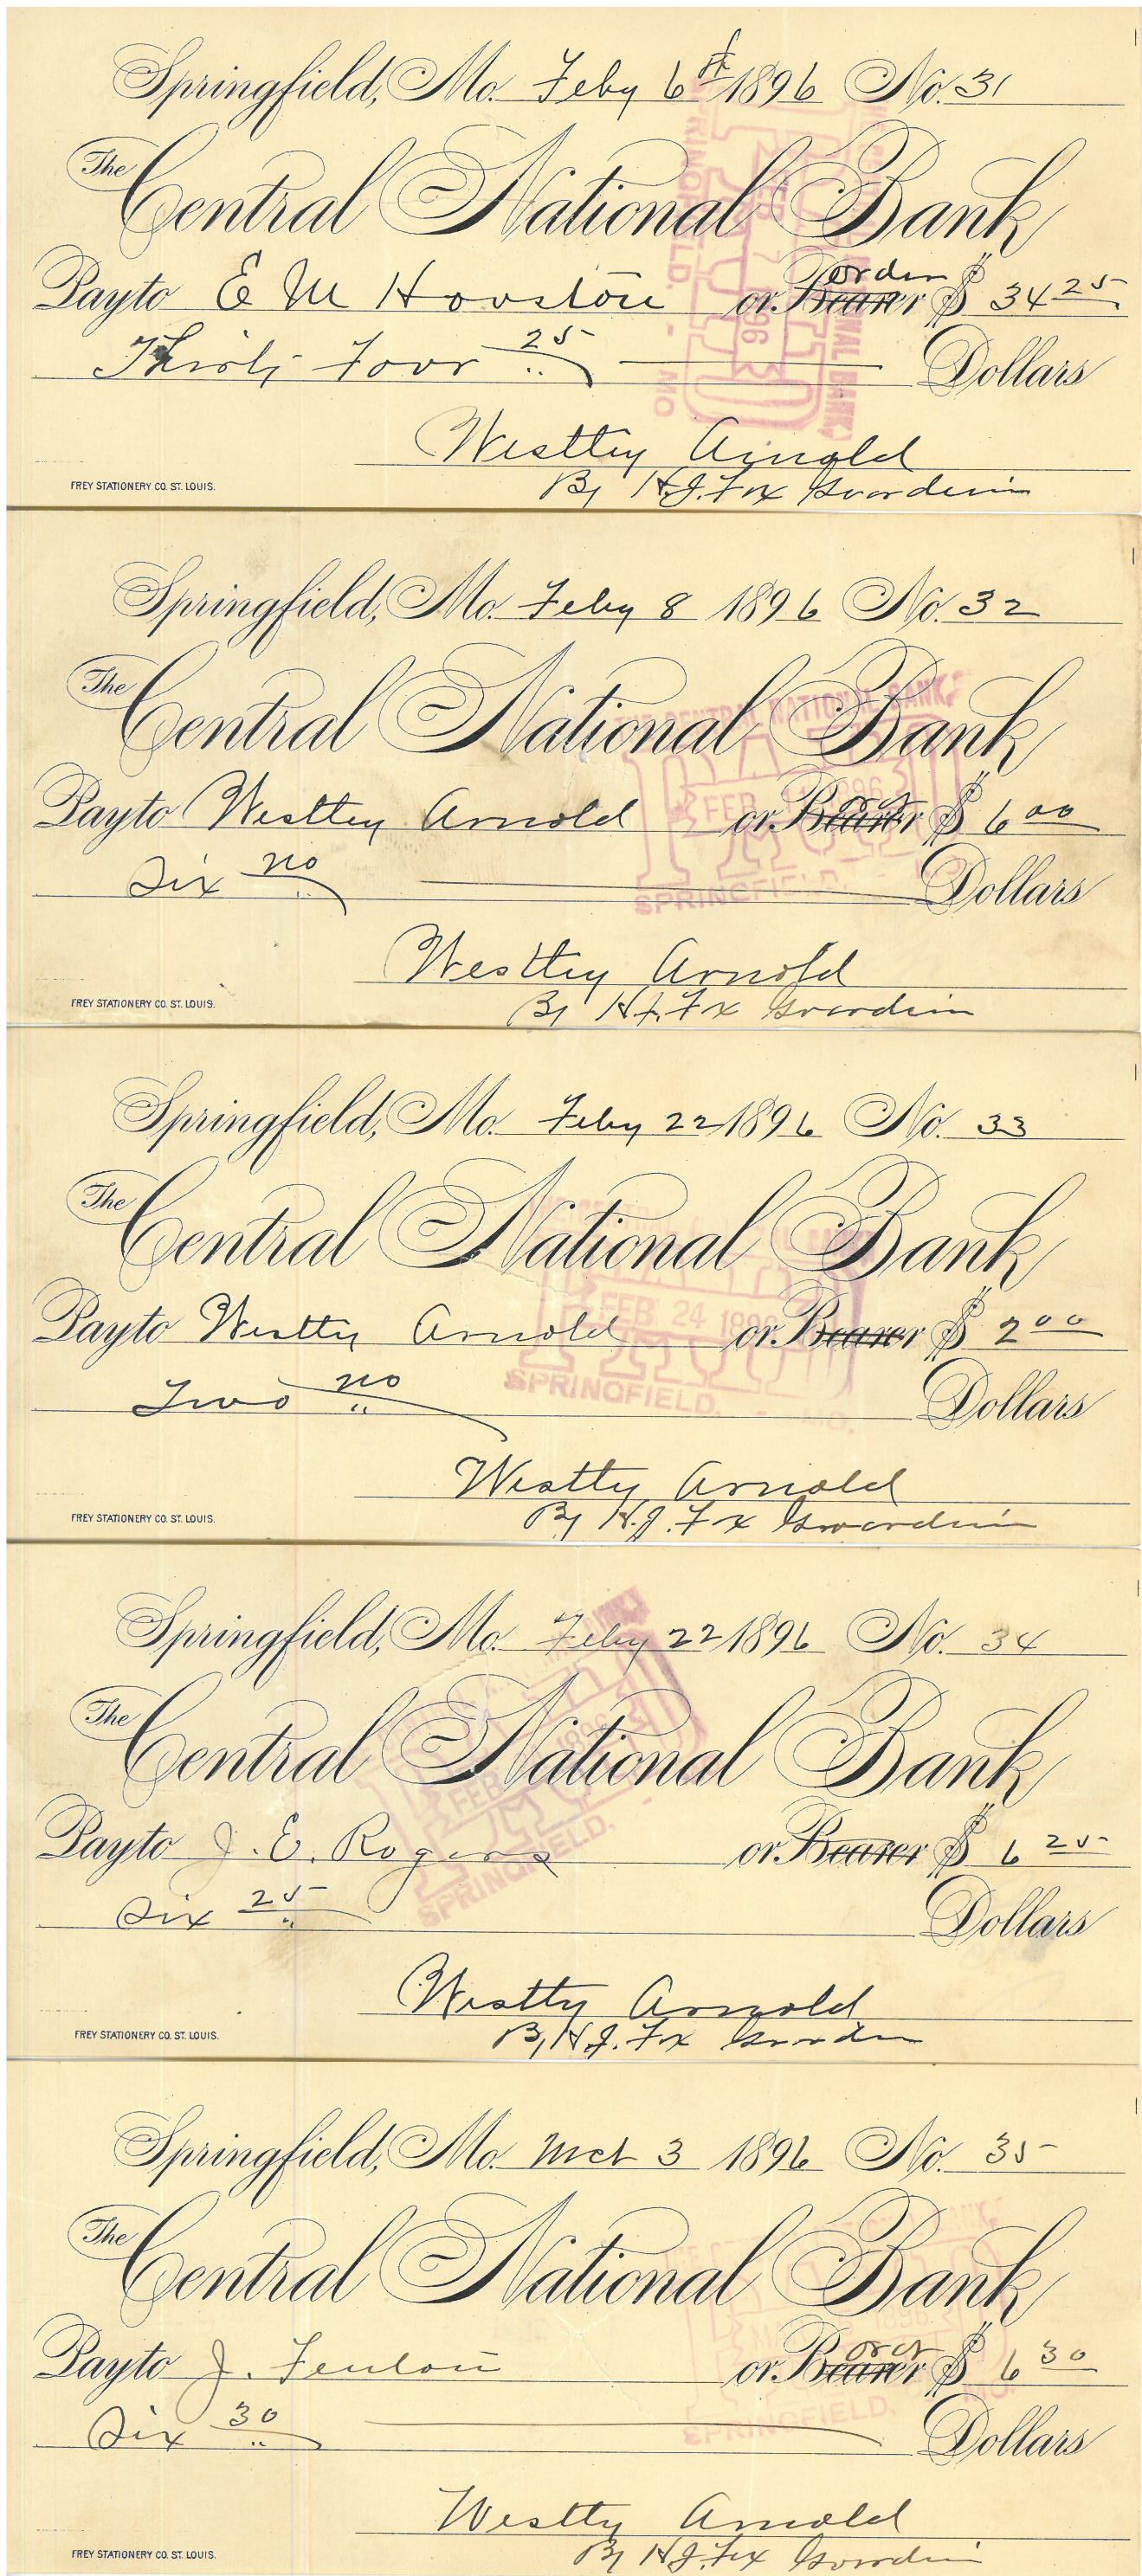 Springfield, Mo. Feby 6th 1896 No. 31
The Central National Bank
Pay to E M Houston or Bearer order $ 34 25
Thirty Four 25 Dollars
Westley Arnold
By H.J. Fox Guardein
FREY STATIONERY CO. ST. LOUIS.
Springfield, Mo. Feby 8 1896 No. 32
The Central National Bank
Pay to Westley Arnold or Bearer $ 6 00
FEB 1896
Six no Dollars
SPRINGFIELD
Westley Arnold
By H.J. Fox Guardein
FREY STATIONERY CO. ST. LOUIS.
Springfield, Mo. Feby 22 1896 No. 33
The Central National Bank
FEB. 24 189
Pay to Westley Arnold or Bearer $ 2 00
SPRINGFIELD, MO.
Two no Dollars
Westley Arnold
By H.J. Fox Guardein
FREY STATIONERY CO. ST. LOUIS.
Springfield, Mo. Feby 22 1896 No. 34
The Central National Bank
FEB 1896
Pay to J. E. Rogers or Bearer $ 6 25
SPRINGFIELD.
Six 25 Dollars
Westley Arnold
By H.J. Fox
FREY STATIONERY CO. ST. LOUIS.
Springfield, Mo. Mch 3 1896 No. 35
The Central National Bank
Pay to J. Fenton or Bearer $ 6 30
SPRINGFIELD,
Six 30 Dollars
Westley Arnold
By H.J. Fox Guardein
FREY STATIONERY CO. ST. LOUIS.